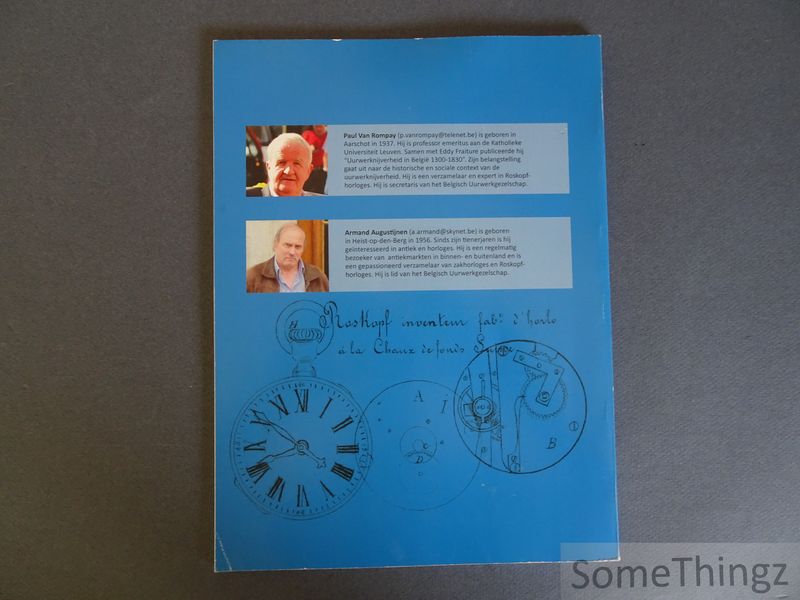 Paul Van Rompay (p.vanrompay@telenet.be) is geboren in
Aarschot in 1937. Hij is professor emeritus aan de Katholieke
Universiteit Leuven. Samen met Eddy Fraiture publiceerde hij
"Uurwerknijverheid in België 1300-1830". Zijn belangstelling
gaat uit naar de historische en sociale context van de
uurwerknijverheid. Hij is een verzamelaar en expert in Roskopf-
horloges. Hij is secretaris van het Belgisch Uurwerkgezelschap.
Armand Augustijnen (a.armand@skynet.be) is geboren
in Heist-op-den-Berg in 1956. Sinds zijn tienerjaren is hij
geïnteresseerd in antiek en horloges. Hij is een regelmatig
bezoeker van antiekmarkten in binnen- en buitenland en is
een gepassioneerd verzamelaar van zakhorloges en Roskopf-
horloges. Hij is lid van het Belgisch Uurwerkgezelschap.
Roskopf inventeur fabt d'horlo
à la Chaux de fonds
H
XII I II III IIII V VI VII VIII IX X XI
A
C
D
B
SomeThingz